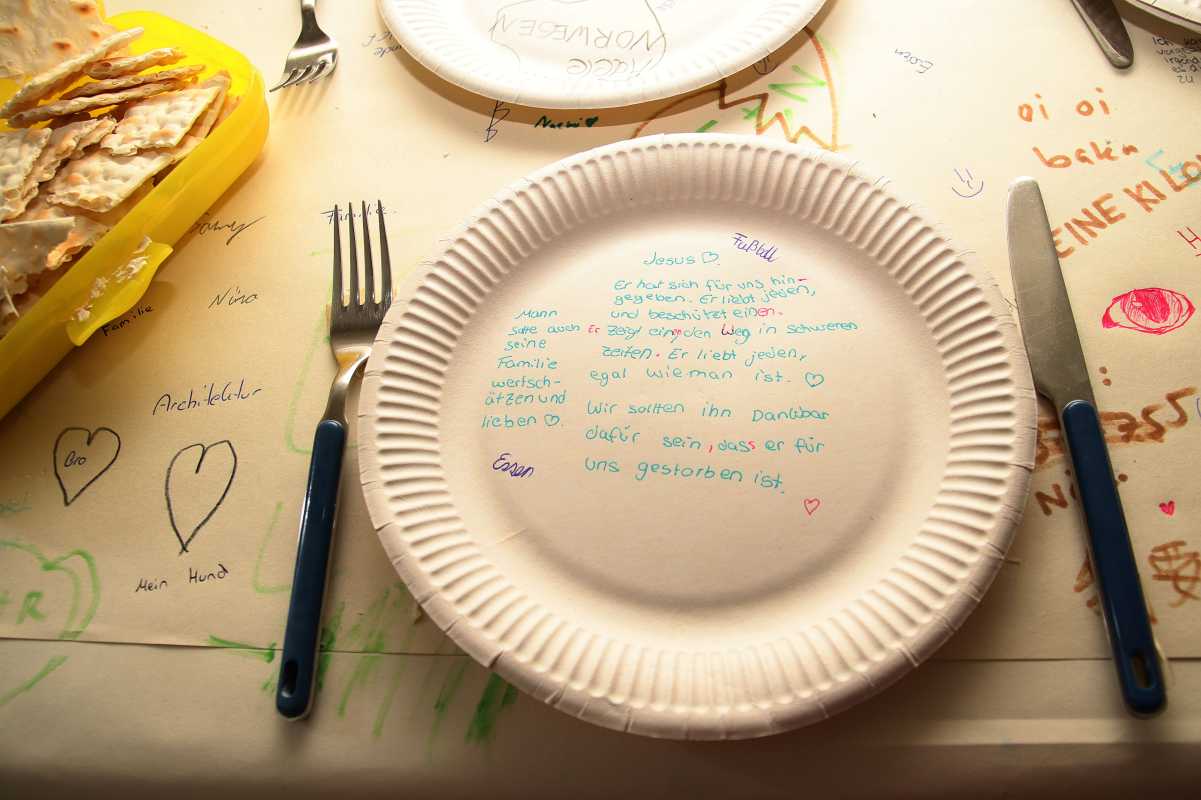 NORWEGEN
Essen
Noemi ♥
oi oi
bakın
EINE KILO
Familie
Nina
Familie
Architektur
Bro
Mein Hund
Fußball
Jesus ♡.
Er hat sich für uns hin-
gegeben. Er liebt jeden,
und beschützt einen.
Er zeigt einen den Weg in schweren
zeiten. Er liebt jeden,
egal wie man ist. ♡
Wir sollten ihn Dankbar
dafür sein, dass er für
uns gestorben ist.
Mann
sotte auch
seine
Familie
wertsch-
ätzen und
lieben ♡.
Essen
+R